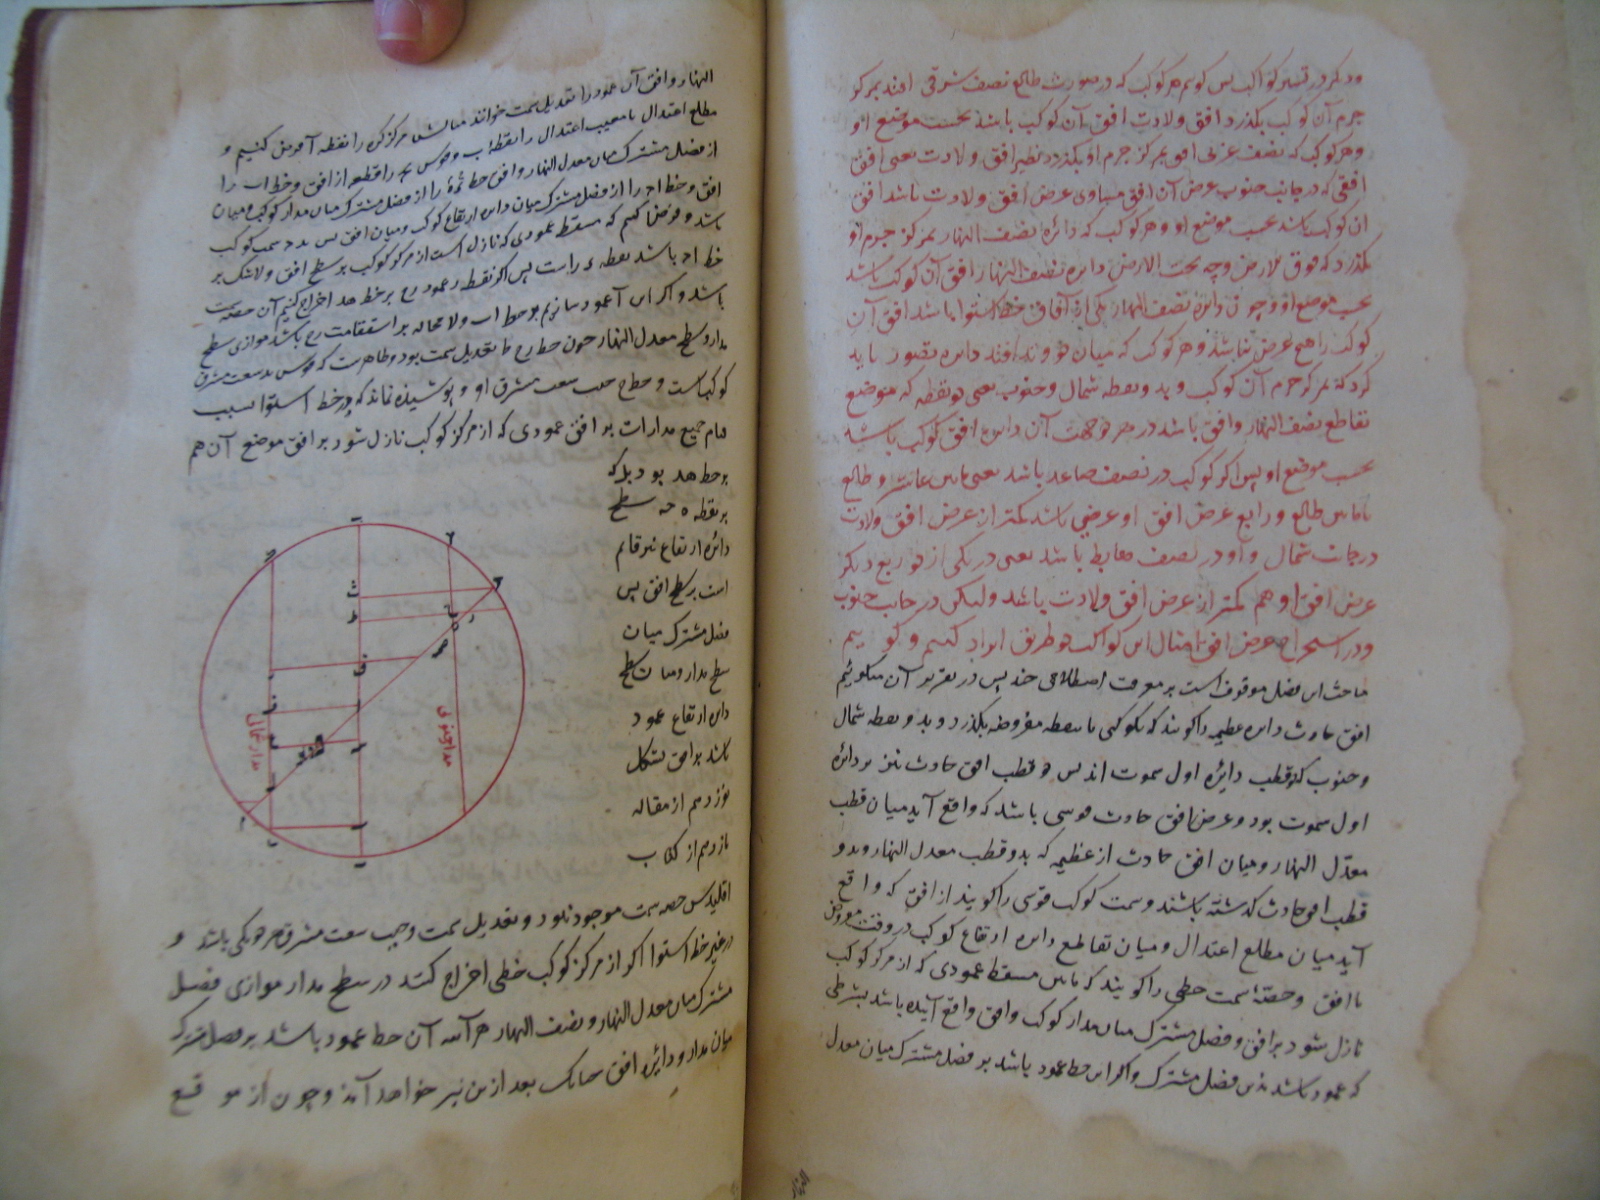 و دیگر در قسم کواکب پس کوییم هر کوکب که در صورت طالع نصف شرقی افتد بمرکز
جرم آن کوکب بگذرد افق ولادت افق آن کوکب باشد بحسب موضع او
و هر کوکب که نصف غربی افق بمرکز جرم او بگذرد نظیر افق ولادت یعنی افق
افقی که در جانب جنوب عرض آن افق مساوی عرض افق ولادت باشد افق
آن کوکب باشد بحسب موضع او و هر کوکب که دائره نصف النهار بمرکز جرم او
بگذرد که فوق الارض و چه تحت الارض دایره نصف النهار افق آن کوکب باشد
بحسب موضع او و چون دائره نصف النهار یکی از آفاق خط استوا باشد افق آن
کوکب را هیچ عرض نباشد و هر کوکب که میان دو وتد افتد دایره تصور باید
کرد که بمرکز جرم آن کوکب و بدو نقطه شمال و جنوب یعنی دو نقطه که موضع
تقاطع نصف النهار و افق باشد در هر دو جهت آن دایره افق کوکب باشد
بحسب موضع او پس اکر کوکب در نصف صاعد باشد یعنی مابین عاشر و طالع
یا مابین طالع و رابع عرض افق او عرضی باشد کمتر از عرض افق ولادت
در جانب شمال و او در نصف هابط باشد یعنی در یکی از دو ربع دیگر
عرض افق او هم کمتر از عرض افق ولادت باشد ولیکن در جانب جنوب
و در استخراج عرض افق امثال این کواکب دو طریق ایراد کنیم و کوییم
مباحث این فصل موقوف است بر معرفت اصطلاحی چند پس در تقریر آن میکوئیم
افق حادث دایره عظیمه را کویند که بکوکبی یا بنقطه مفروضه بگذرد و بدو نقطه شمال
و جنوب که قطب دایره اول سموت اند پس دو قطب افق حادث نیز بر دائره
اول سموت بود و عرض افق حادث قوسی باشد که واقع آید میان قطب
معدل النهار و میان افق حادث از عظیمه که بدو قطب معدل النهار و بدو
قطب افق حادث کذشته باشند و سمت کوکب قوسی را کویند از افق که واقع
آید میان مطلع اعتدال و میان تقاطع دایره ارتفاع کوکب در وقت مفروض
با افق و حصّهٔ سمت خطی را کویند که مابین مسقط عمودی که از مرکز کوکب
نازل شود بر افق و فصل مشترک میان مدار کوکب و افق واقع آینده باشد بشرطی
که عمود باشد بدین فصل مشترک و اکر این خط عمود باشد بر فصل مشترک میان معدل
النهار و افق آن عمود را تعدیل سمت خوانند مثالش مرکز کره را نقطه آ فرض کنیم و
مطلع اعتدال یا مغیب اعتدال را نقطه ب و قوس را قطعه از افق و خط اب را
از فصل مشترک میان معدل النهار و افق خط را از فصل مشترک میان مدار کوکب و میان
افق و خط اج را از فصل مشترک میان دایره ارتفاع کوکب و میان افق پس ب ج سمت کوکب
باشد و فرض کنیم که مسقط عمودی که نازل است از مرکز کوکب بر سطح افق و لاشک بر
خط اج باشد نقطه راست پس اکر نقطه عمود بر خط هد اخراج کنیم آن حصّه سمت
باشد و اکر این عمود سازیم بر خط اب و لا محاله بر استقامت باشد موازی سطح
مدار و سطح معدل النهار چون خط تعدیل سمت بود و ظاهرست که قوس سعت مشرق
کوکب است و خط جیب سعت مشرق او و پوشیده نماند که در خط استوا بسبب
قیام جمیع مدارات بر افق عمودی که از مرکز کوکب نازل شود بر افق موضع آن هم
بر خط هد بود بلکه
بر نقطه ه چه سطح
دائره ارتفاع نیز قائم
است بر سطح افق پس
فصل مشترک میان
سطح مدار و میان سطح
دایره ارتفاع عمود
باشد بر افق بشکل
نوزدهم از مقاله
یازدهم از کتاب
مدار شمالی
مدار جنوبی
اقلیدس پس حصه سمت موجود نبود و تعدیل سمت و جیب سعت مشرق هر دو یکی باشد و
در غیر خط استوا اکر از مرکز کوکب خطی اخراج کنند در سطح مدار موازی فصل
مشترک میان معدل النهار و نصف النهار هر آینه آن خط عمود باشد بر فصل مشترک
میان مدار و دائره افق چنانک بعد ازین نیز خواهد آمد و چون از موقع